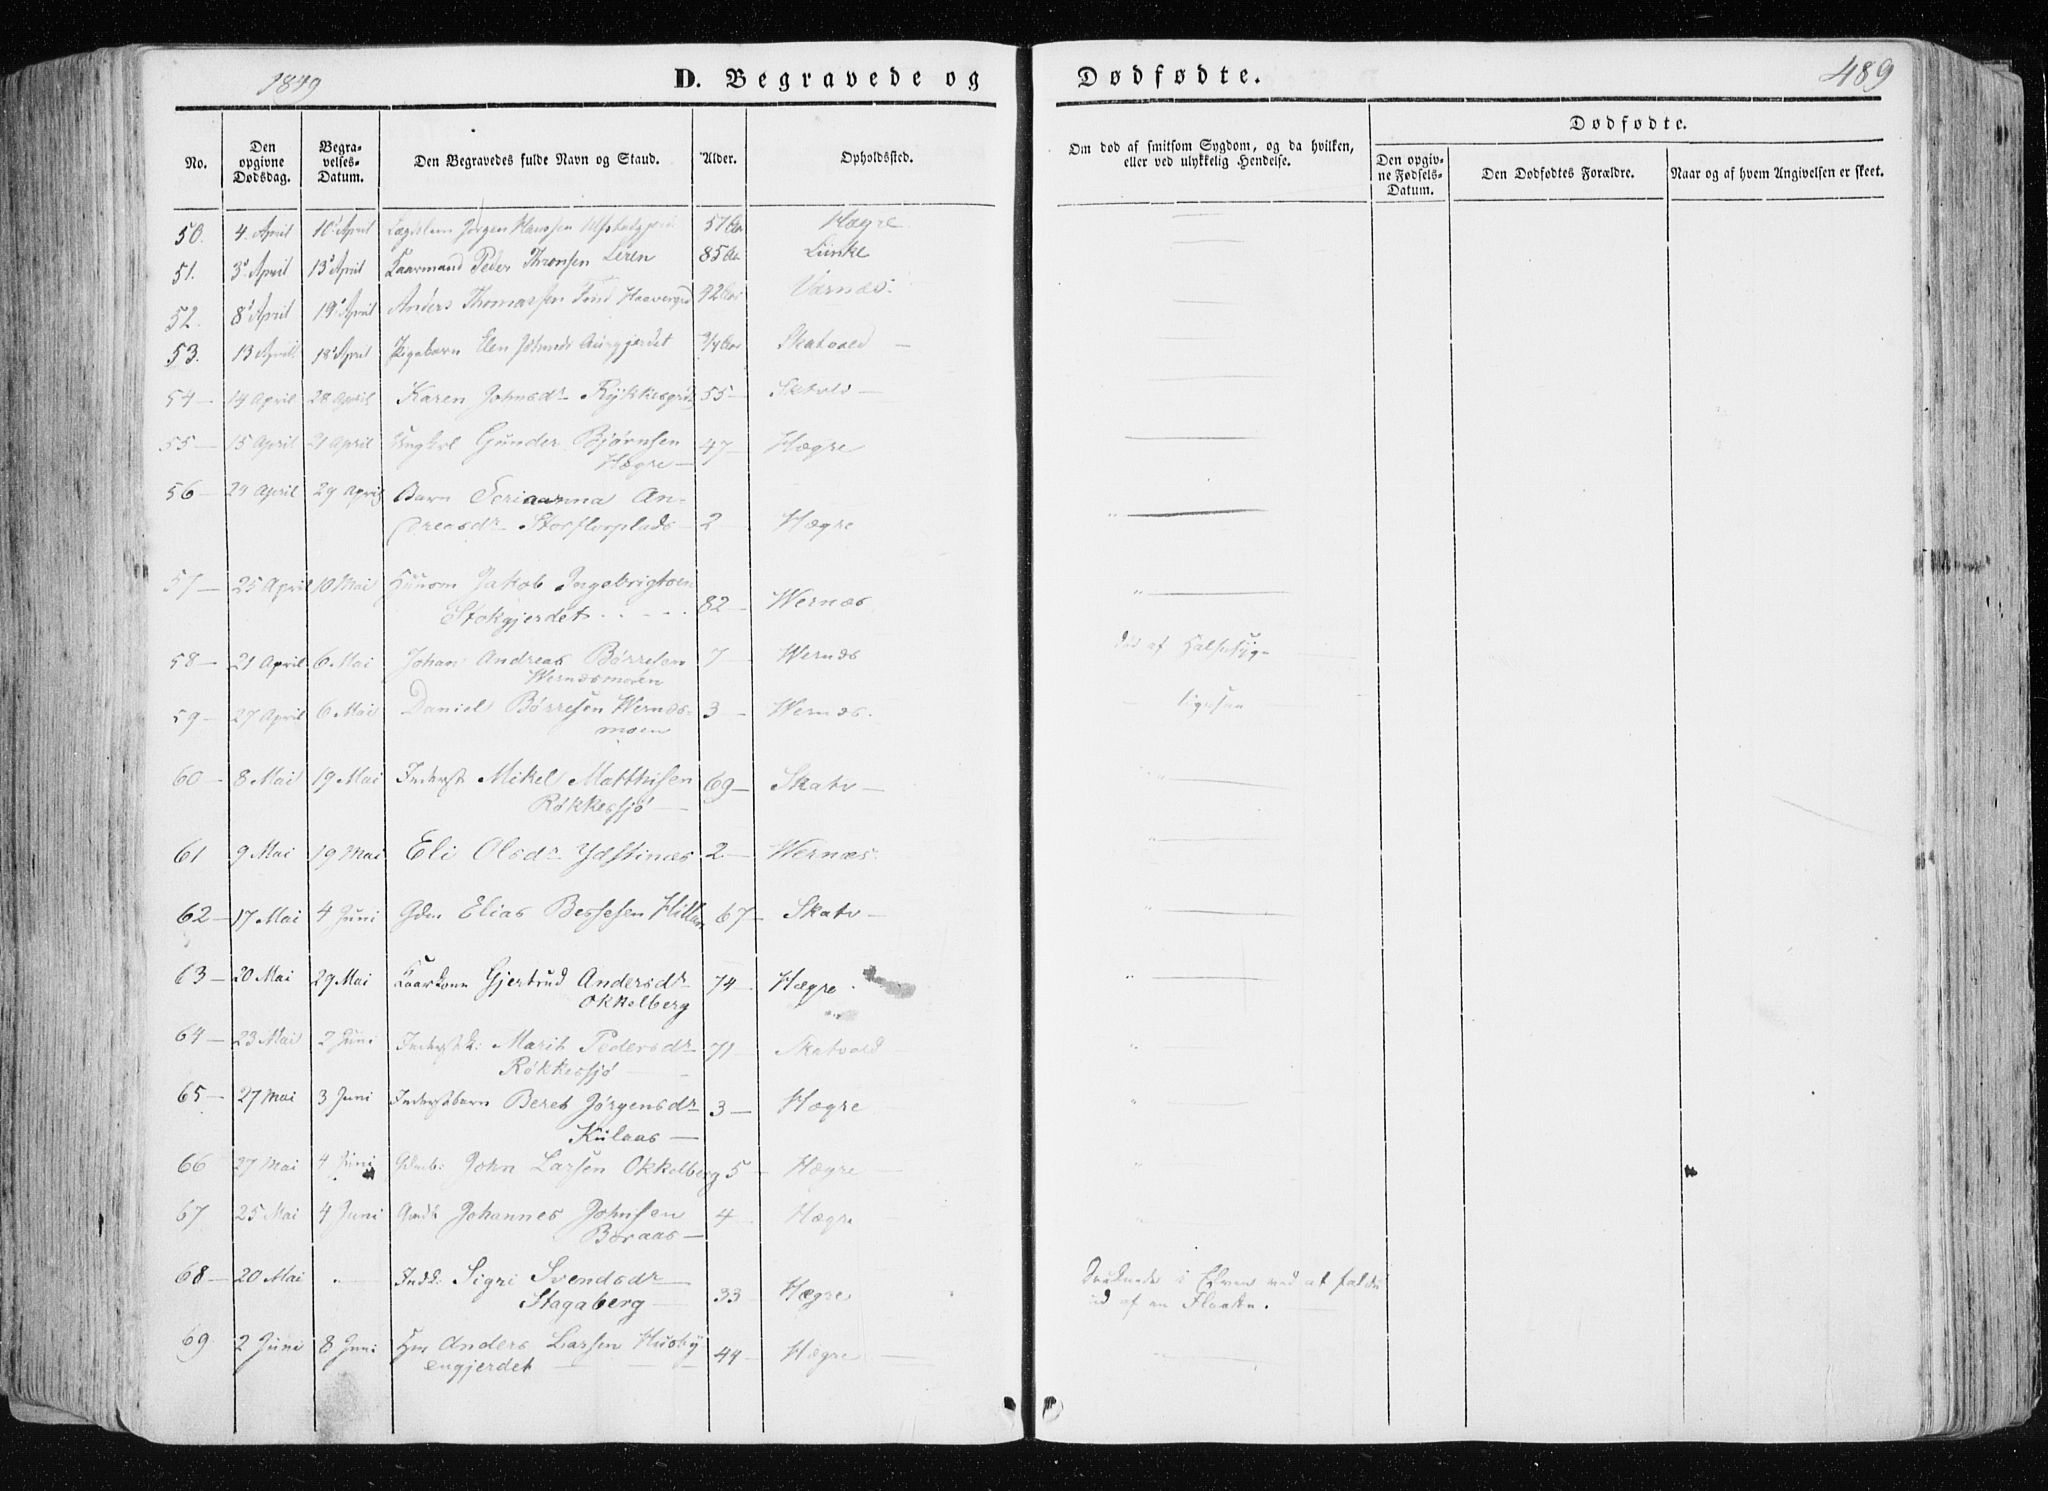 1849
D. Begravede og Dødfødte.
489
No.
Den opgivne Dødsdag.
Begravelses-Datum.
Den Begravedes fulde Navn og Stand.
Alder.
Opholdssted.
Om død af smitsom Sygdom, og da hvilken, eller ved ulykkelig Hendelse.
Dødfødte.
Den opgivne Fødsels-Datum.
Den Dødfødtes Forældre.
Naar og af hvem Angivelsen er skeet.
50. 4. April 10 April Jørgen Hanssen 57 Hægre
51. 3 April 13 April Kaarmand Peder Thronsen Leren 85 Lunke
52. 8 April 19 April Anders Thomassen Værnæs
53. 13 April 18 April Pigebarn Elen Skatvold
54 — 14 April 28 April Karen Johnsdr 55 — Skatvld —
55 — 15 April 21 April Ungkrl Gunder Bjørnsen
Hægre — 47 — Hægre
56 — 24 April 29 April Barn An-
dreasdr Storflorplads — 2 Hægre
57 — 25 April 10 Mai Huusm Jakob Ingebrigtsen
Stokgjerdet 82 — Wernæs
58 — 21 April 6 Mai Johan Andreas Børresen 7 — Wernæs død af Halssyge
Wernæsmoen
59 — 27 April 6 Mai Daniel Børresen Wernæs- 3 — Wernæs. ligesaa
moen
60 — 8 Mai 19 Mai Inderst Mikel Matthisen 69 — Skatv —
Røkkessjø —
61 9 Mai 19 Mai Eli Olsdr Ydstinæs 2 — Wernæs.
62 — 17 Mai 4 Juni Gdm Elias Bersesen 67 — Skatv —
63 — 20 Mai 29 Mai Kaarkone Gjertrud Andersdr 74 — Hægre
Okkelberg
64 — 23 Mai 2 Juni Inderstk: Marit Pedersdr 71 — Skatvold
Røkkessjø
65 — 27 Mai 3 Juni Inderstbarn Beret Jørgensdr 3 — Hægre
Kulaas —
66 27 Mai 4 Juni Gdmb: John Larsen Okkelberg 5 — Hægre
67 25 Mai 4 Juni Johannes Johnsen 4 Hægre
Boraas —
68 — 20 Mai " Indk: Sigri Svendsdr Druknede i Elven ved at falde
Stagaberg — 33 Hægre ud af en Flaate.
69 2 Juni 8 Juni Hm Anders Larsen Husby
engjerdet 44 — Hægre